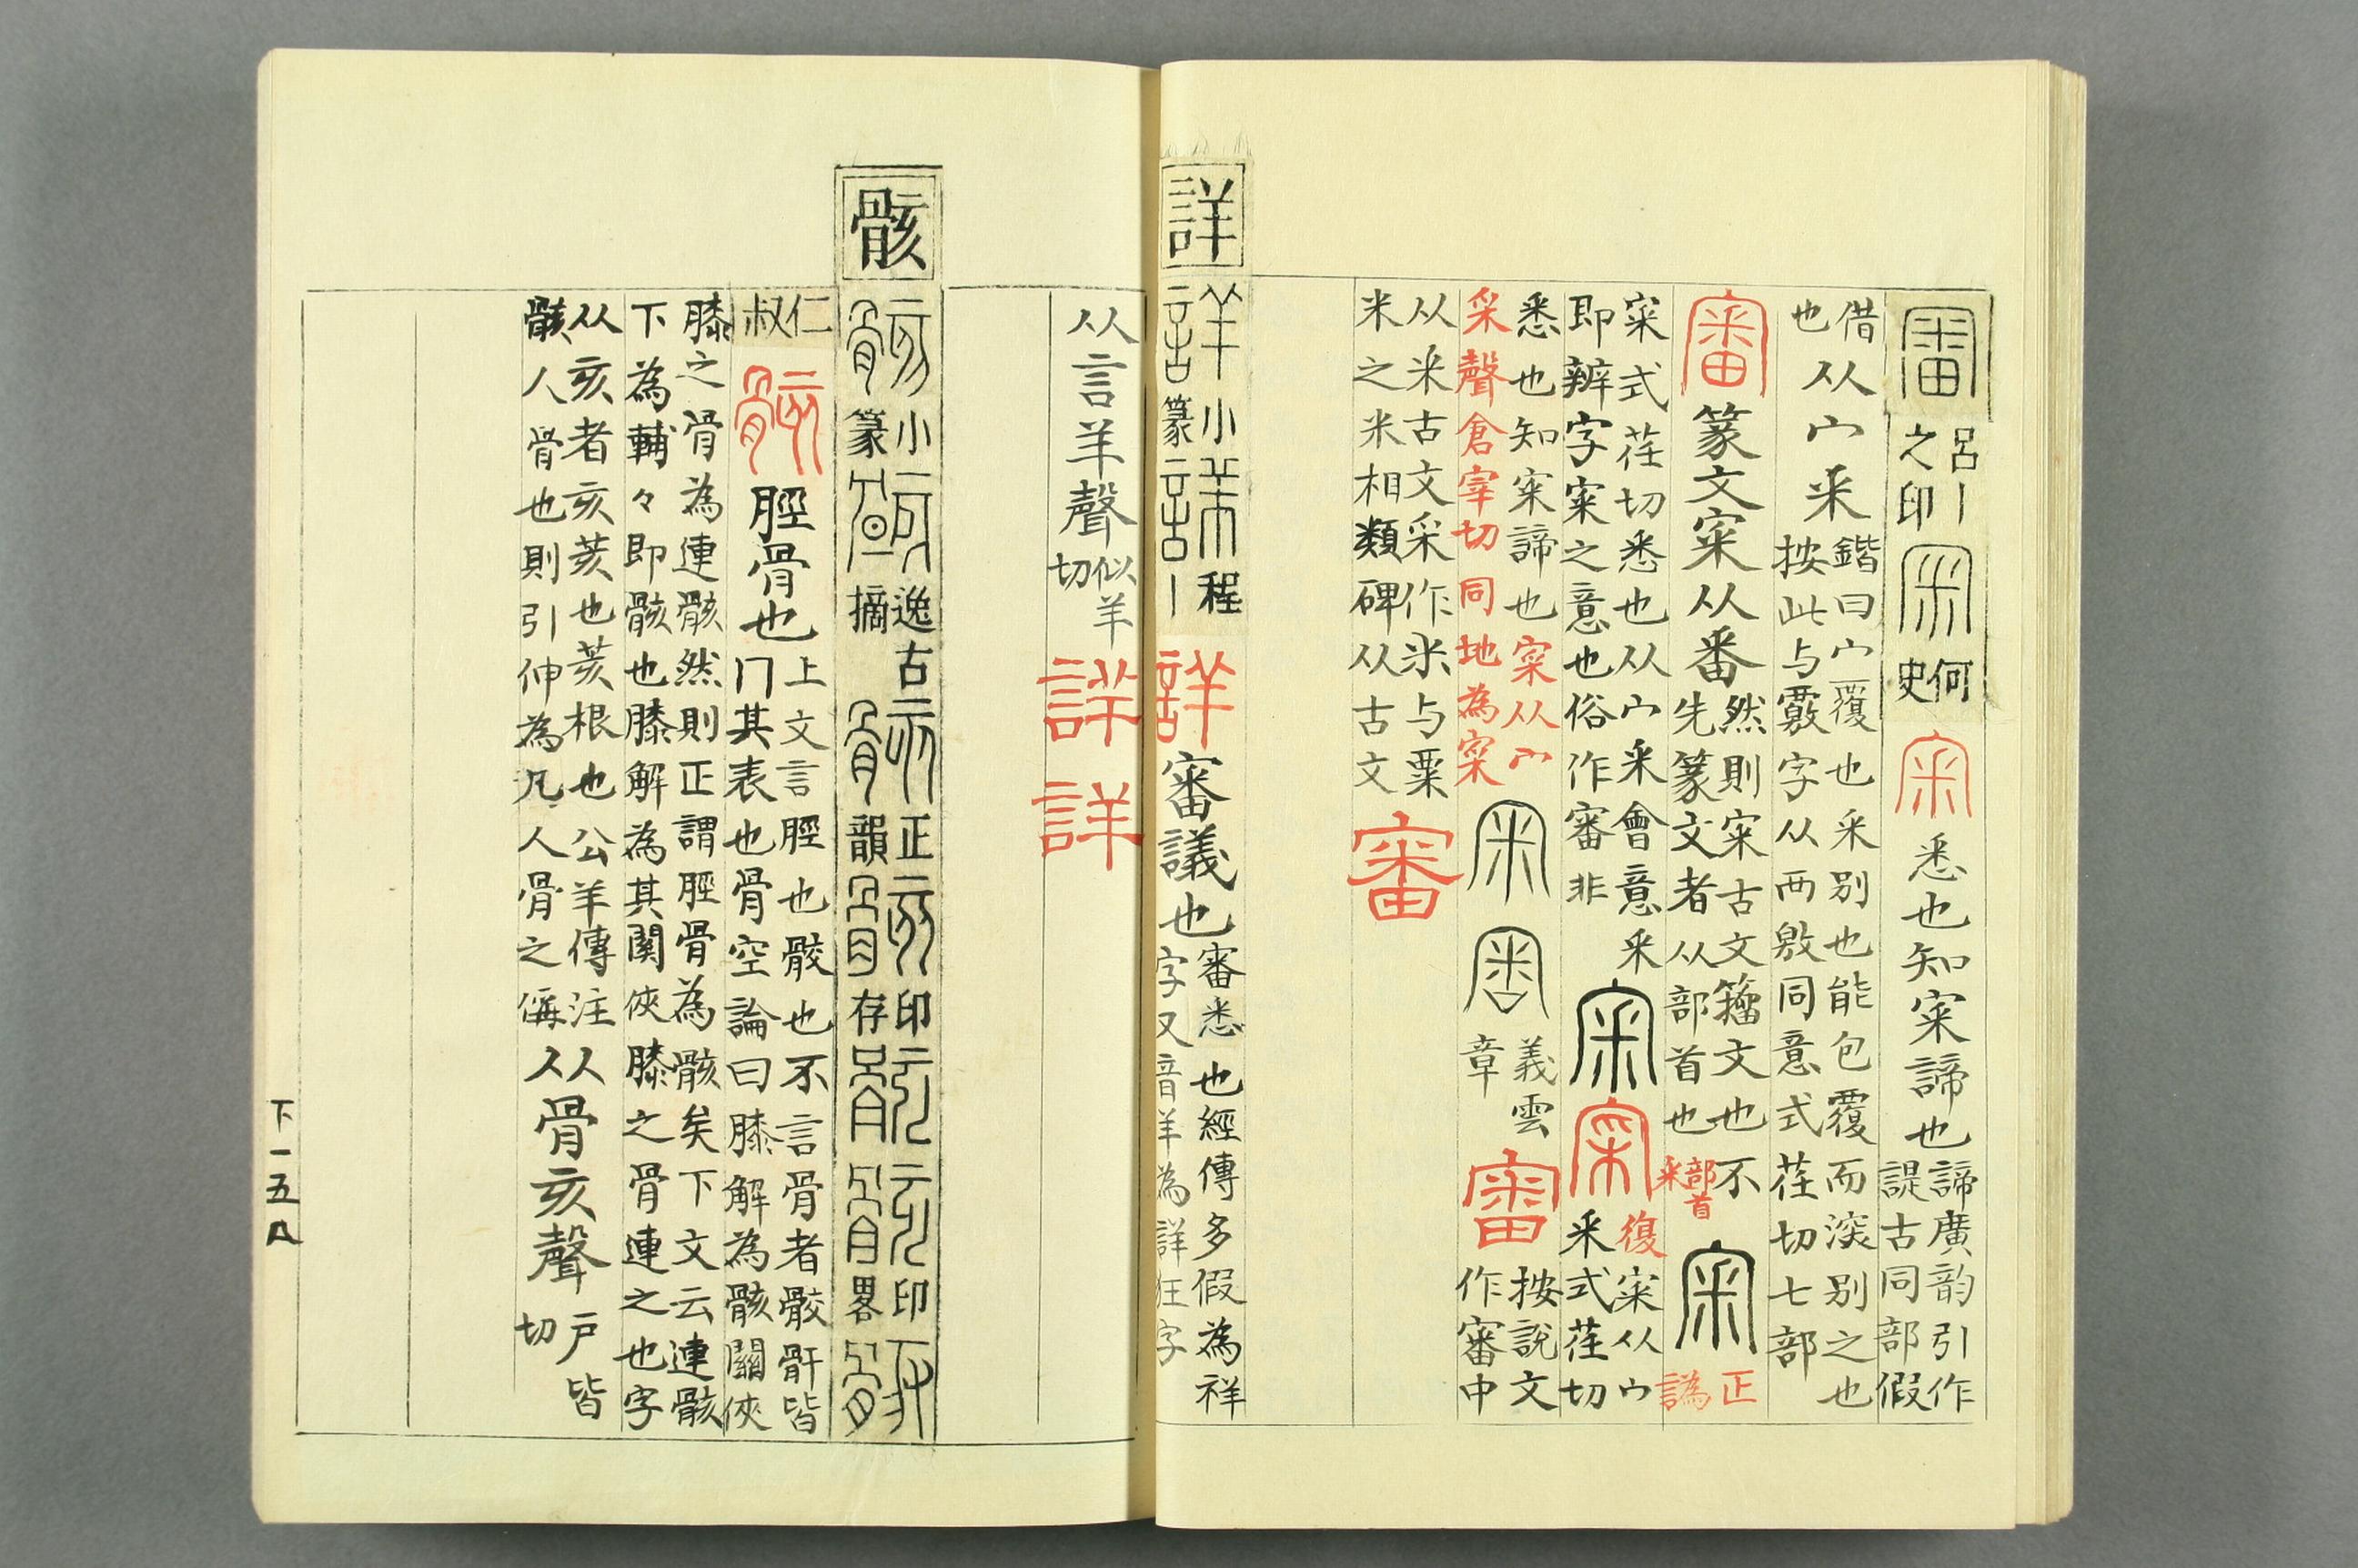 審 呂丨之印 宷 何史 宷 悉也知宷諦也 諦廣韵引作諟古同部假
借也 从宀釆 鍇曰宀覆也釆別也能包覆而深別之也 按此与覈字从襾敫同意式荏切七部
審 篆文宷从番 然則宷古文籒文也不先篆文者从部首也 部首釆 宷 正譌
宷式荏切悉也从宀釆會意釆即辨字宷之意也俗作審非 宷 宷 復宷从宀釆式荏切
悉也知宷諦也宷从宀釆聲倉宰切同地為寀 義雲章 審 按說文作審中
从米古文采作𠂹与粟米之米相類碑从古文 審
詳
詳 小篆 詳 程丨 詳 審議也 審悉也經傳多假為祥字又音羊為詳狂字
从言羊聲 似羊切 詳 詳
骸
骸 小篆 骸 逸古摘 骸 正韻 骸 印存 骸 骸 印畧 骸
仁叔 骸 脛骨也 上文言脛也骹也不言骨者骹骭皆冂其表也骨空論曰膝解為骸關俠
膝之骨為連骸然則正謂脛骨為骸矣下文云連骸下為輔々即骸也膝解為其関俠膝之骨連之也字
从亥者亥荄也荄根也公羊傳注骸人骨也則引伸為凡人骨之偁 从骨亥聲 戸皆切
下一五八